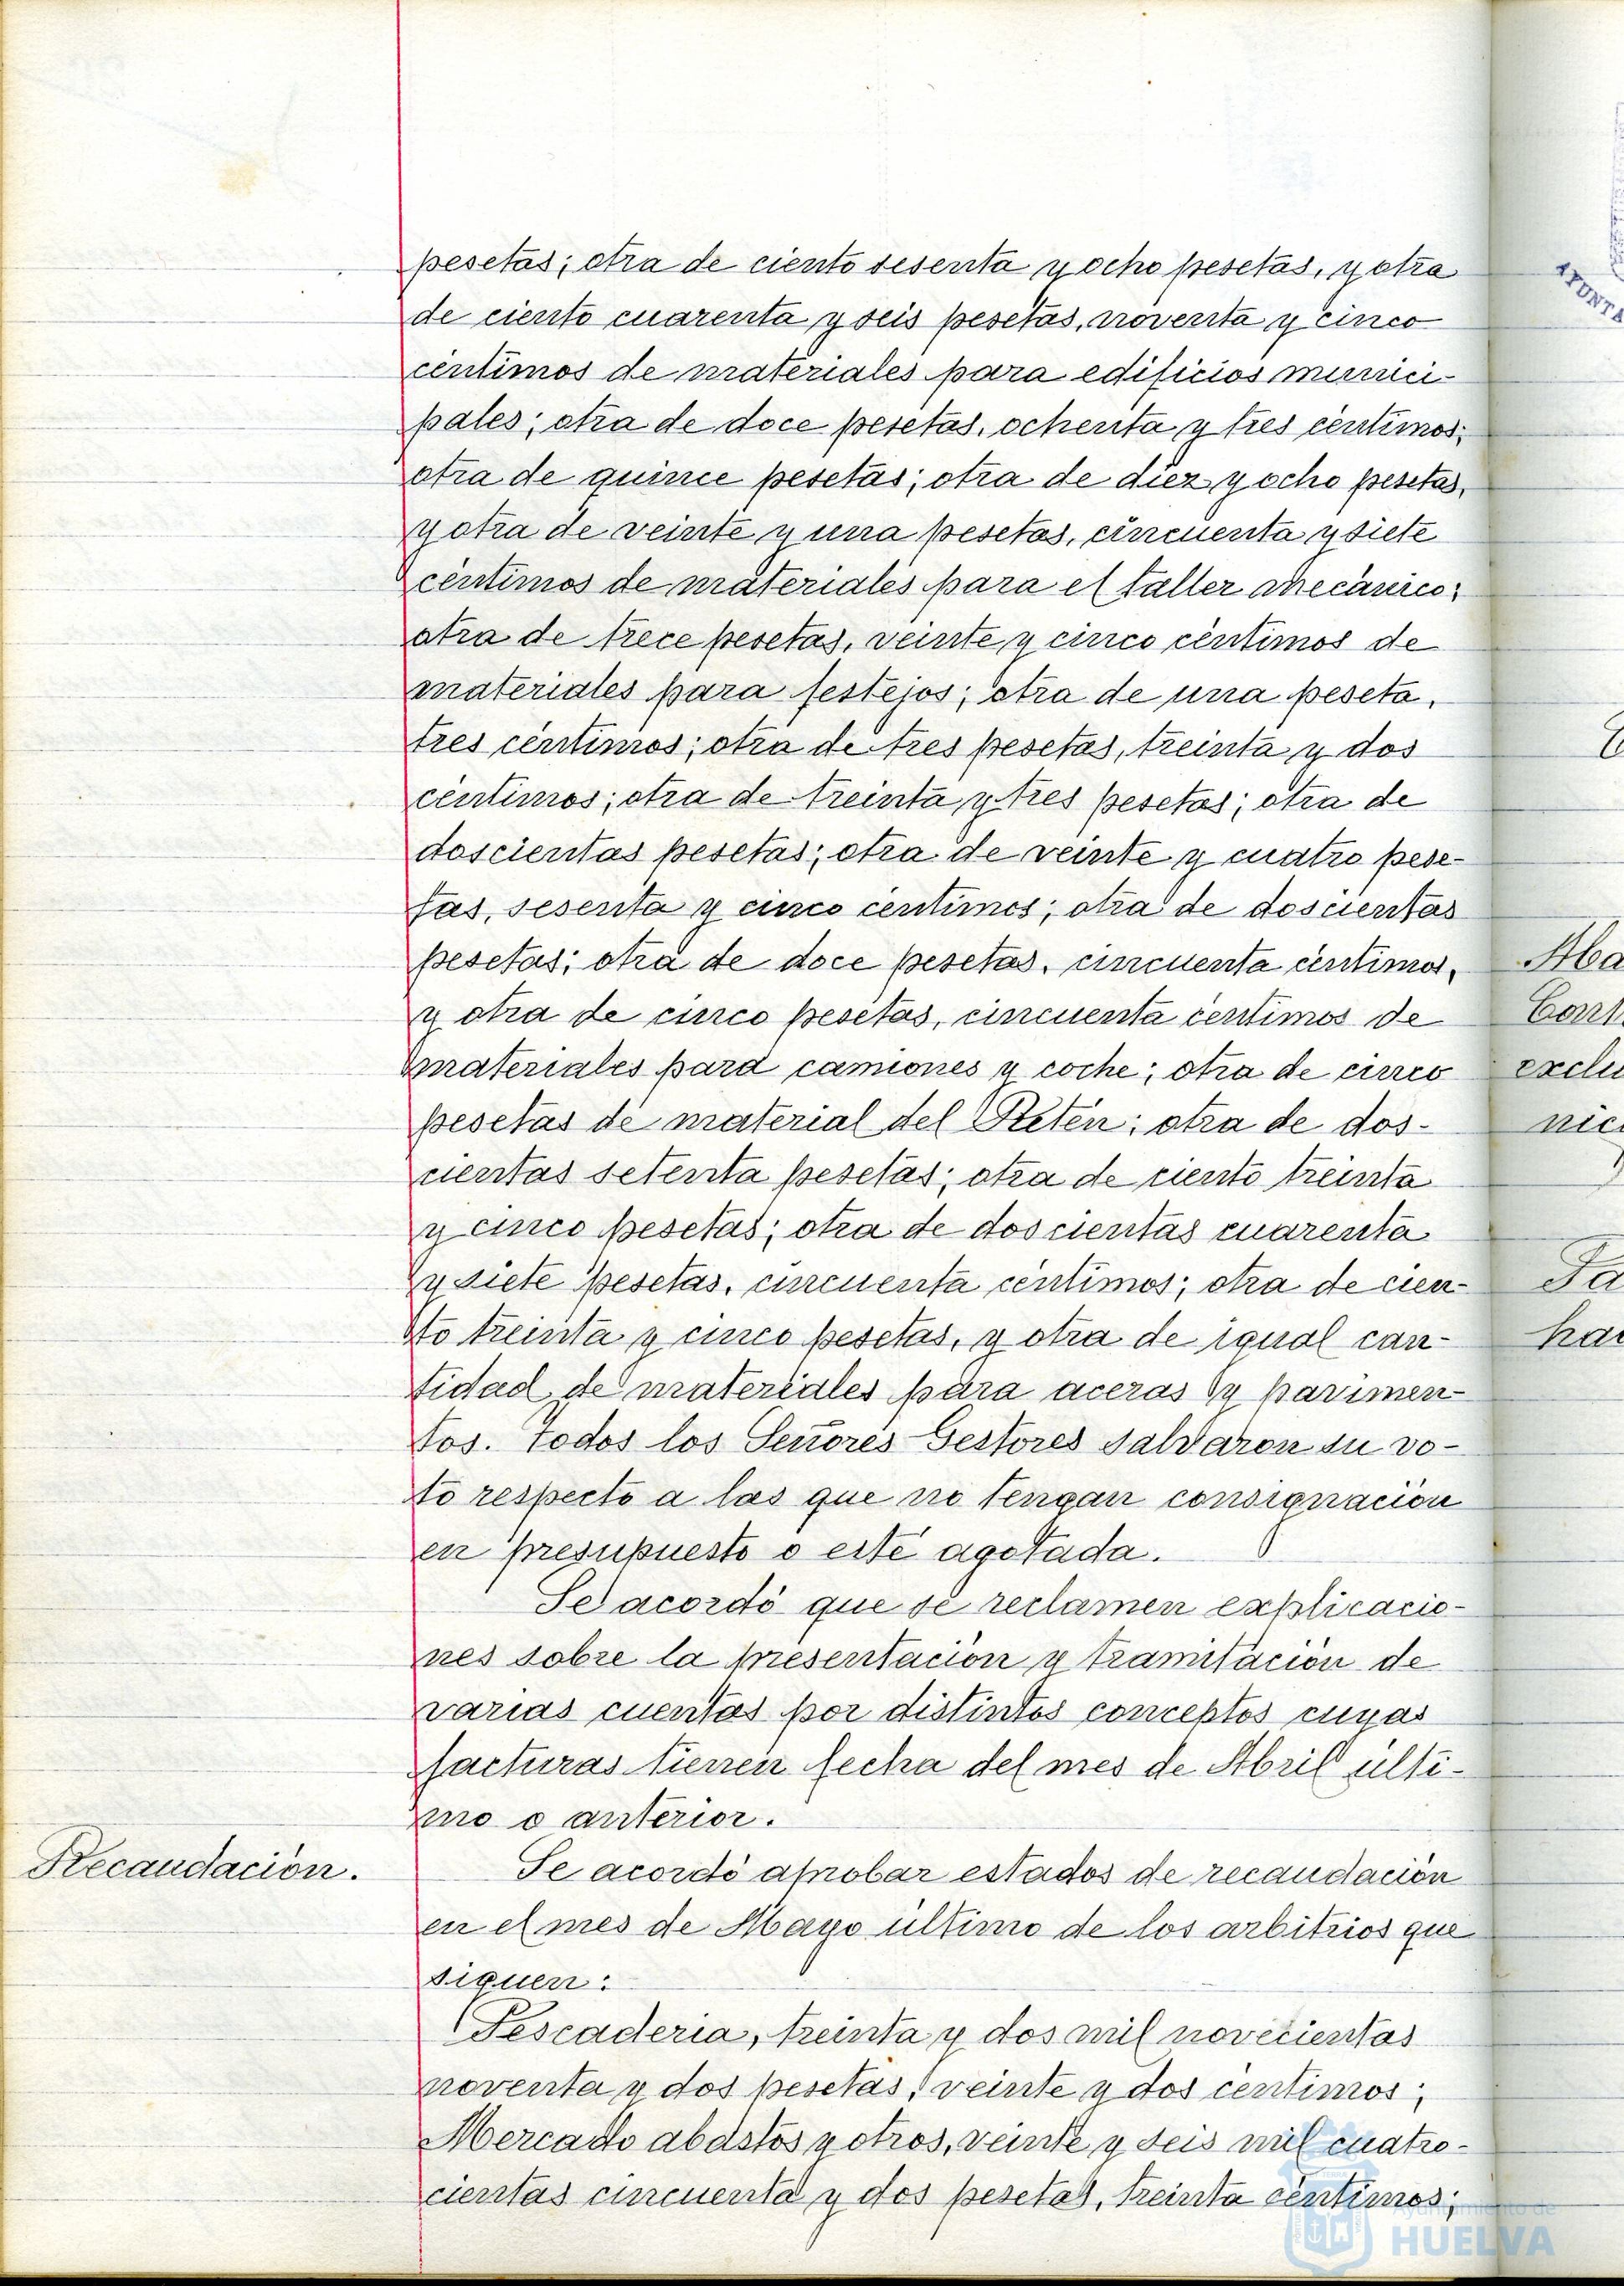 pesetas; otra de ciento sesenta y ocho pesetas, y otra
de ciento cuarenta y seis pesetas, noventa y cinco
céntimos de materiales para edificios munici-
pales; otra de doce pesetas, ochenta y tres céntimos;
otra de quince pesetas; otra de diez y ocho pesetas,
y otra de veinte y una pesetas, cincuenta y siete
céntimos de materiales para el taller mecánico;
otra de trece pesetas, veinte y cinco céntimos de
materiales para festejos; otra de una peseta,
tres céntimos; otra de tres pesetas, treinta y dos
céntimos; otra de treinta y tres pesetas; otra de
doscientas pesetas; otra de veinte y cuatro pese-
tas, sesenta y cinco centimos; otra de doscientas
pesetas; otra de doce pesetas, cincuenta céntimos,
y otra de cinco pesetas, cincuenta centimos de
materiales para camiones y coche; otra de cinco
pesetas de material del Retén; otra de dos-
cientas setenta pesetas; otra de ciento treinta
y cinco pesetas; otra de doscientas cuarenta
y siete pesetas, cincuenta céntimos; otra de cien-
to treinta y cinco pesetas, y otra de igual can-
tidad de materiales para aceras y pavimen-
tos. Todos los Señores Gestores salvaron su vo-
to respecto a las que no tengan consignación
en presupuesto o esté agotada.
Se acordó que se reclamen explicacio-
nes sobre la presentación y tramitación de
varias cuentas por distintos conceptos cuyas
facturas tienen fecha del mes de Abril últi-
mo o anterior.
Recaudación.
Se acordó aprobar estados de recaudación
en el mes de Mayo último de los arbitrios que
siguen:
Pescaderia, treinta y dos mil novecientas
noventa y dos pesetas, veinte y dos centimos;
Mercado abastos y otros, veinte y seis mil cuatro-
cientas cincuenta y dos pesetas, treinta céntimos;
Ayuntamiento de
HUELVA